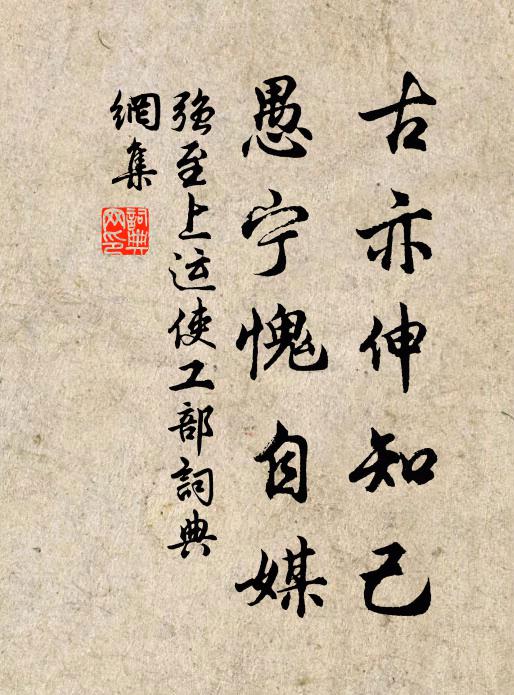 古亦伸知己
愚宁愧自媒
强至上运使工部詞典
網集
詞典
网印